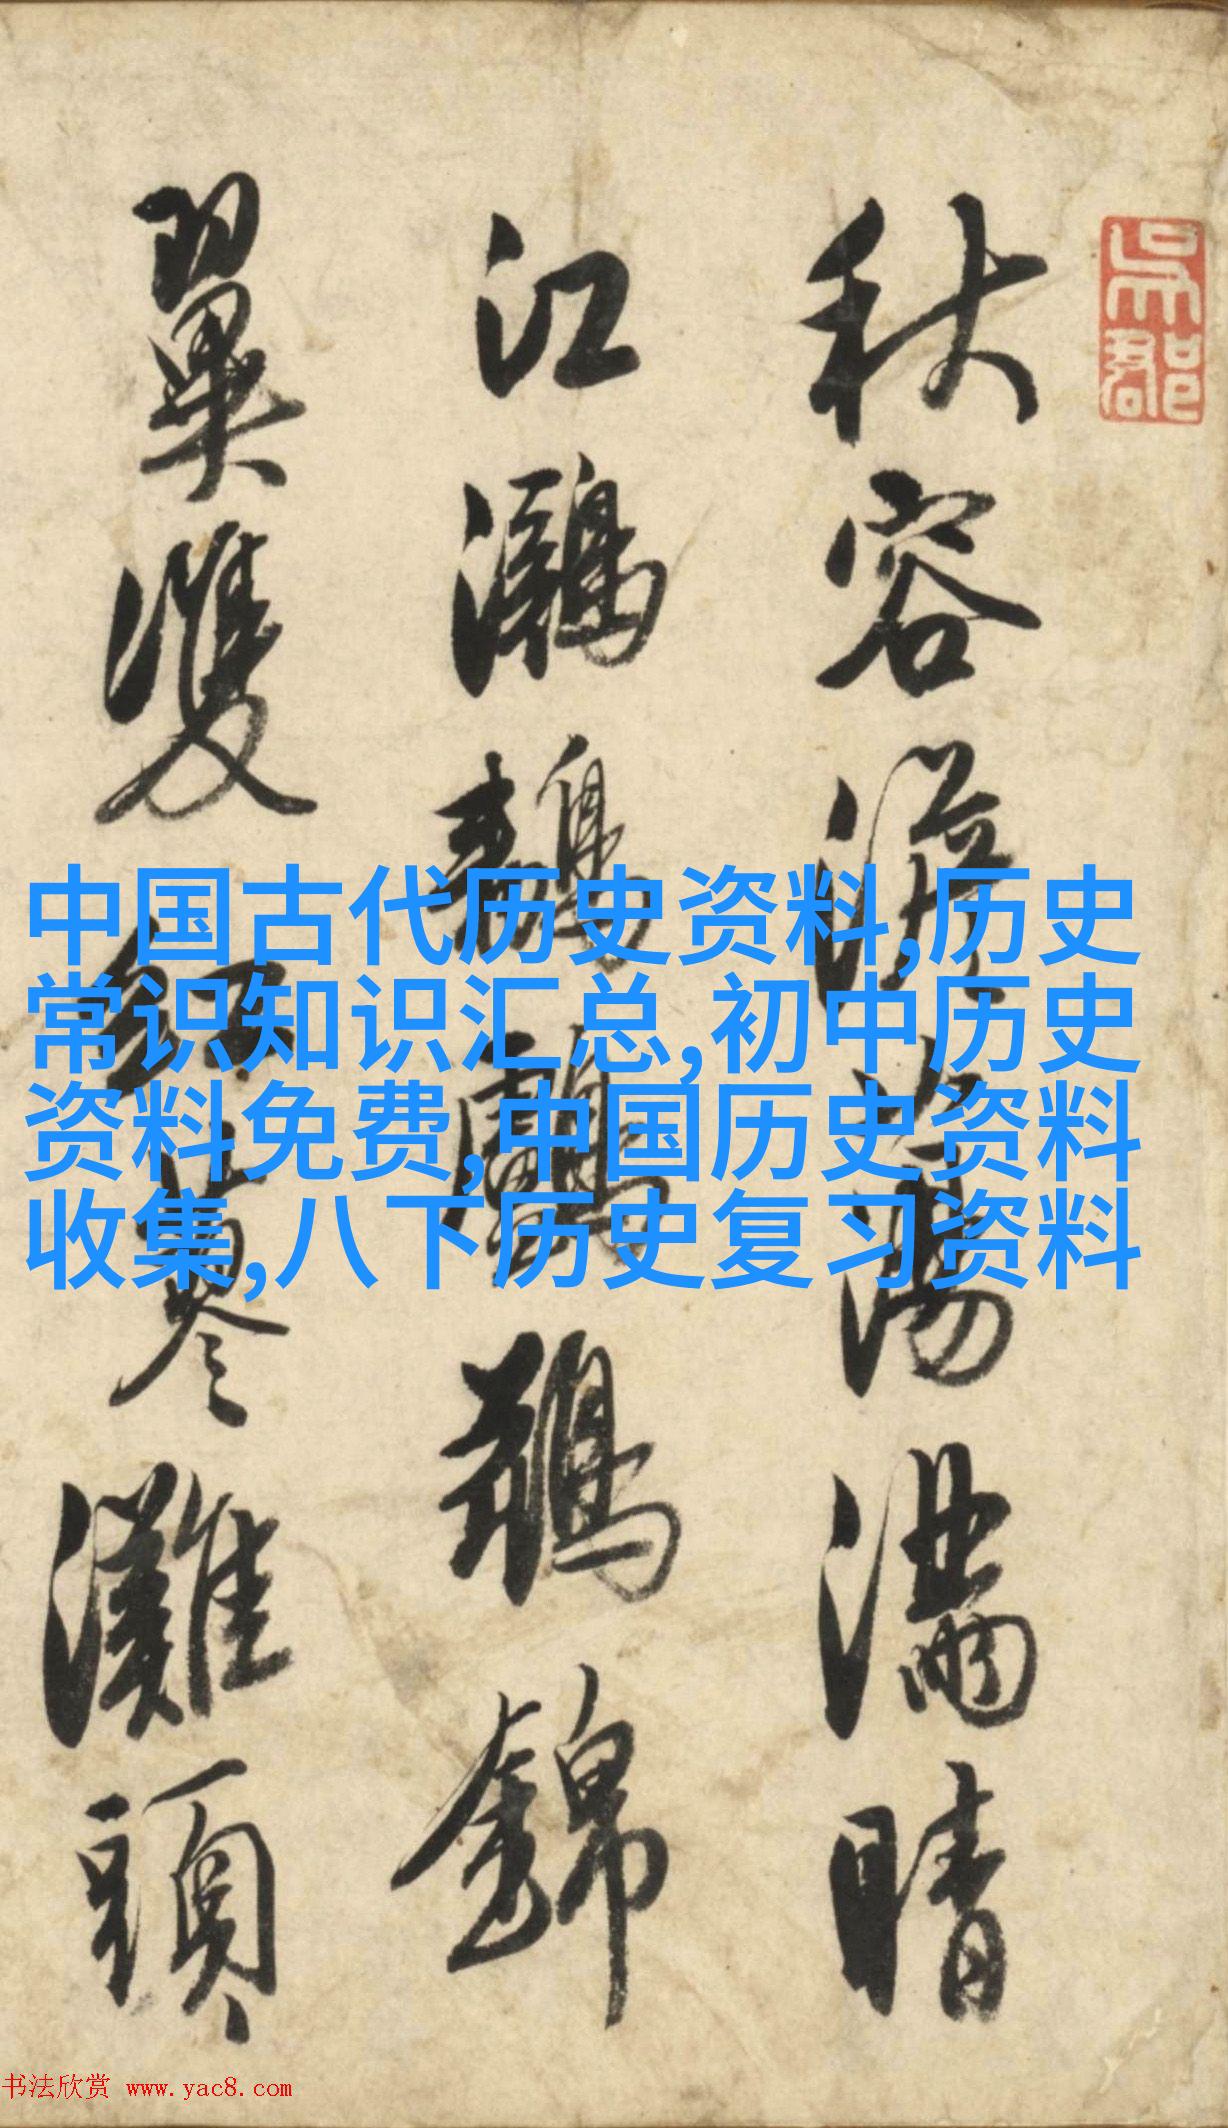 秋容澹蕩滿晴
江鸂鶒鷛鶄錦
翼雙紅蓼灘頭
吳郡
中国古代历史资料,历史
常识知识汇总,初中历史
资料免费,中国历史资料
收集,八下历史复习资料
书法欣赏 www.yac8.com